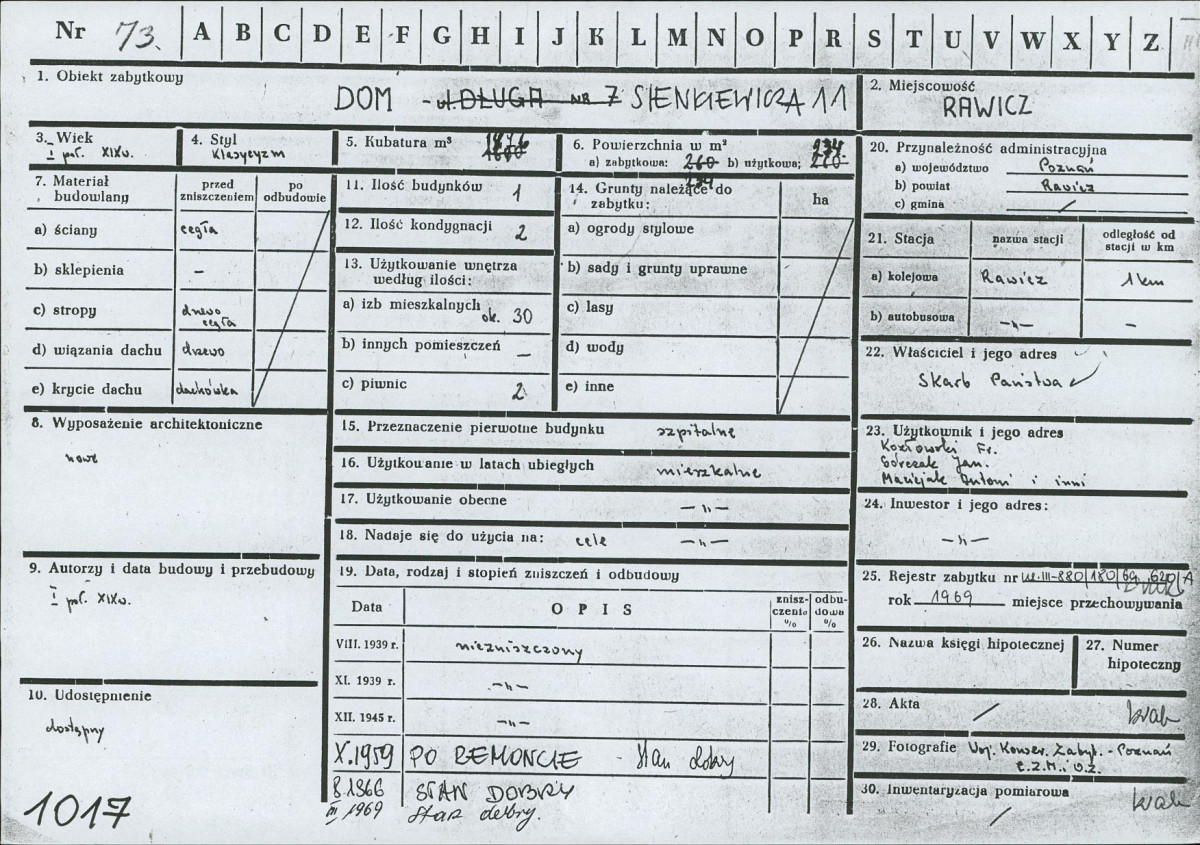 Nr 73. A B C D E F G H I J K L M N O P R S T U V W X Y Z
1. Obiekt zabytkowy
DOM - ul DŁUGA NR 7 SIENKIEWICZA 11
2. Miejscowość
RAWICZ
3. Wiek
I poł. XIXw.
4. Styl
Klasycyzm
5. Kubatura m³
6. Powierzchnia w m²
a) zabytkowa: 260 b) użytkowa: 260
234 234
20. Przynależność administracyjna
a) województwo Poznań
b) powiat Rawicz
c) gmina /
7. Materiał budowlany
przed zniszczeniem
po odbudowie
a) ściany cegła
b) sklepienia –
c) stropy drzewo
cegła
d) wiązania dachu drzewo
e) krycie dachu dachówka
11. Ilość budynków 1
12. Ilość kondygnacji 2
13. Użytkowanie wnętrza
według ilości:
a) izb mieszkalnych ok. 30
b) innych pomieszczeń –
c) piwnic 2
14. Grunty należące do
zabytku: ha
a) ogrody stylowe
b) sady i grunty uprawne
c) lasy
d) wody
e) inne
21. Stacja
nazwa stacji
odległość od
stacji w km
a) kolejowa Rawicz 1 km
b) autobusowa –„– –
22. Właściciel i jego adres
Skarb Państwa
8. Wyposażenie architektoniczne
nowe
15. Przeznaczenie pierwotne budynku szpitalne
16. Użytkowanie w latach ubiegłych mieszkalne
17. Użytkowanie obecne –„–
18. Nadaje się do użycia na: cele –„–
23. Użytkownik i jego adres
Kozłowski Fr.
Górczak Jan.
Maciejak Antoni i inni
24. Inwestor i jego adres:
–„–
9. Autorzy i data budowy i przebudowy
I poł. XIXw.
10. Udostępnienie
dostępny
19. Data, rodzaj i stopień zniszczeń i odbudowy
Data OPIS znisz-
czenie % odbu-
dowa %
VIII. 1939 r. niezniszczony
XI. 1939 r. –„–
XII. 1945 r. –„–
X.1959 PO REMONCIE - Stan dobry
8.1966 STAN DOBRY
III 1969 Stan dobry.
25. Rejestr zabytku nr kl.III-880/180/69 620/A
rok 1969 miejsce przechowywania
26. Nazwa księgi hipotecznej
27. Numer
hipoteczny
28. Akta / brak
29. Fotografie Woj. Konser. Zabyt. - Poznań
30. Inwentaryzacja pomiarowa brak
/
1017